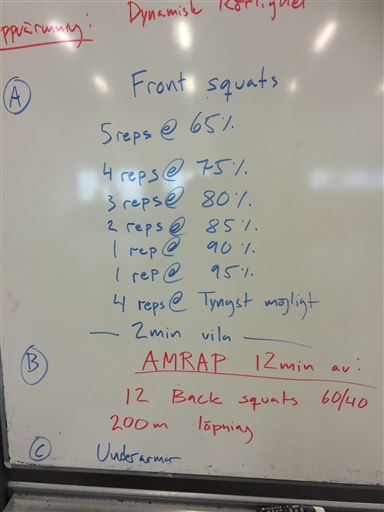 Dynamisk Rörlighet
ppvärmning:
A
Front squats
5 reps @ 65%
4 reps @ 75%
3 reps @ 80%
2 reps @ 85%
1 rep @ 90%
1 rep @ 95%
4 reps @ Tyngst möjligt
— 2min vila —
B
AMRAP 12min av:
12 Back squats 60/40
200m löpning
C
Underarmar